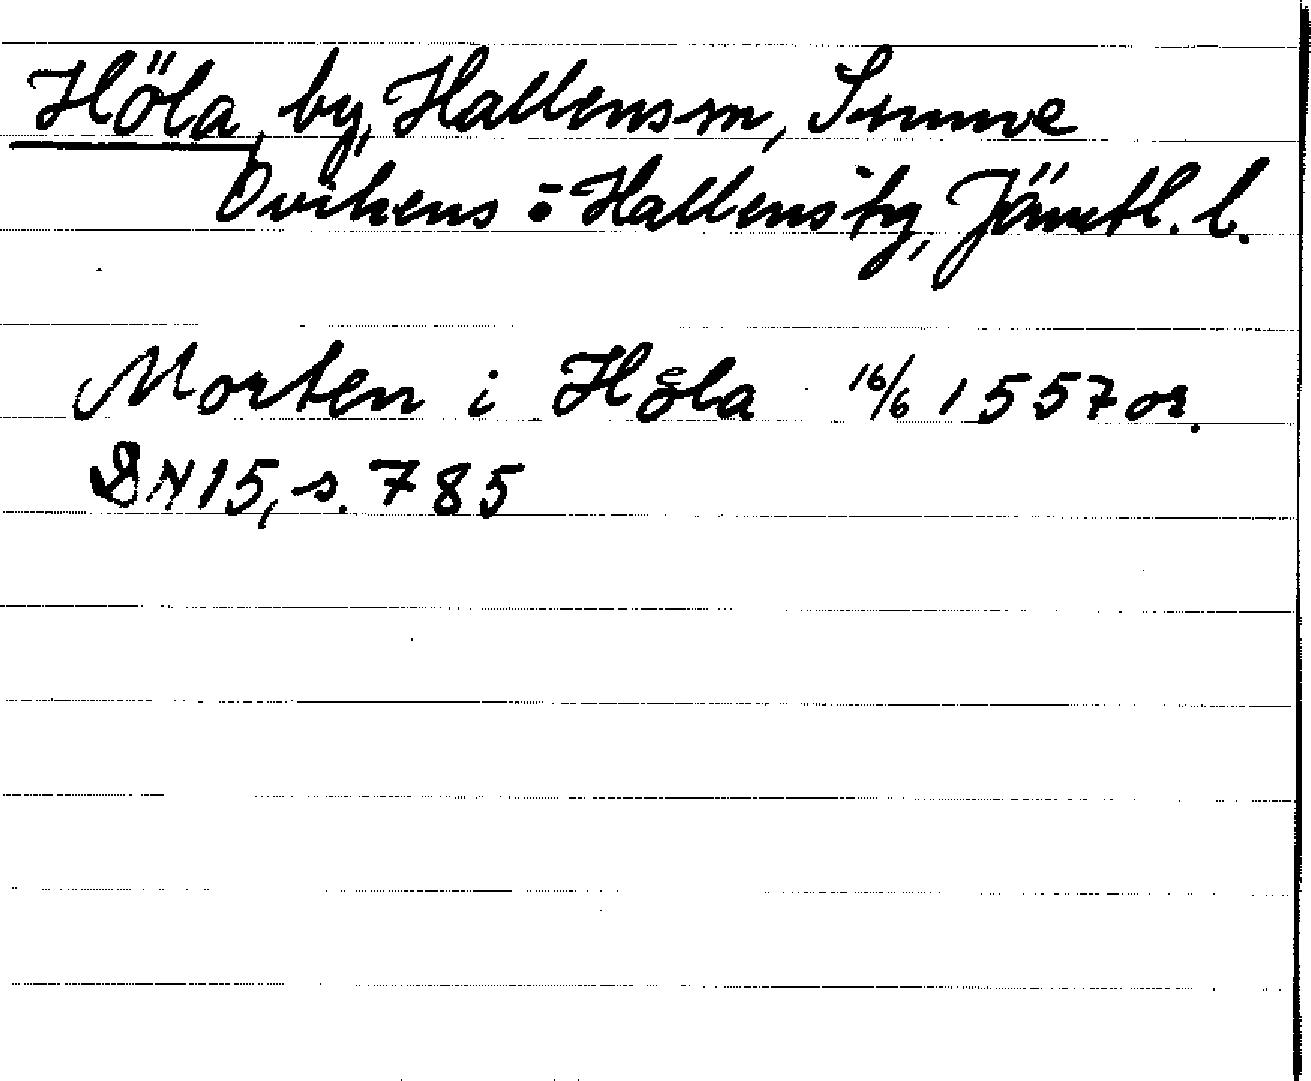 Höla, by, Hallens sn, Sunne
Ovikens o Hallens tg, Jämtl. l.
Morten i Höla 16/6 1557 or.
DN 15, s. 785